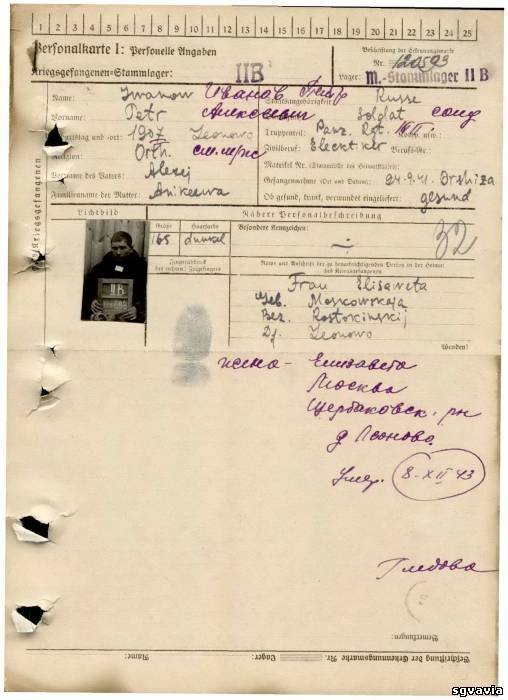 1 2 3 4 5 6 7 8 9 10 11 12 13 14 15 16 17 18 19 20 21 22 23 24 25
Personalkarte I: Personelle Angaben
Beschriftung der Erkennungsmarke
Nr. 120593
Kriegsgefangenen-Stammlager: II B
Lager: M.-Stammlager II B
Name: Iwanow Иванов Петр
Staatsangehörigkeit: Russe
Vorname: Petr Алексеевич
Dienstgrad: Soldat солд
Geburtstag und -ort: 1907 Leonowo
Truppenteil: Komp. usw.:
Religion: Orth.
Zivilberuf: Berufs-Gr.:
Vorname des Vaters: Alexej
Matrikel Nr. (Stammrolle des Heimatstaates):
Gefangennahme (Ort und Datum): 24.9.41. Orshiza
Familienname der Mutter: Anikeewa
Ob gesund, krank, verwundet eingeliefert: gesund
des Kriegsgefangenen
Lichtbild
Nähere Personalbeschreibung
Größe Haarfarbe Besondere Kennzeichen:
165 dunkel
32
Fingerabdruck
des rechten Zeigefingers
Name und Anschrift der zu benachrichtigenden Person in der Heimat
des Kriegsgefangenen
II B
Frau Elisaweta
Geb. Moskowskaja
Bez. Rostokinskij
Df. Leonowo
Wenden!
жена - Елизавета
Москва
Щербаковск. рн
д. Леоново.
Умер. 8-XII 43
Глебова
Bemerkungen:
Beschriftung der Erkennungsmarke Nr. Lager:
sgvavia